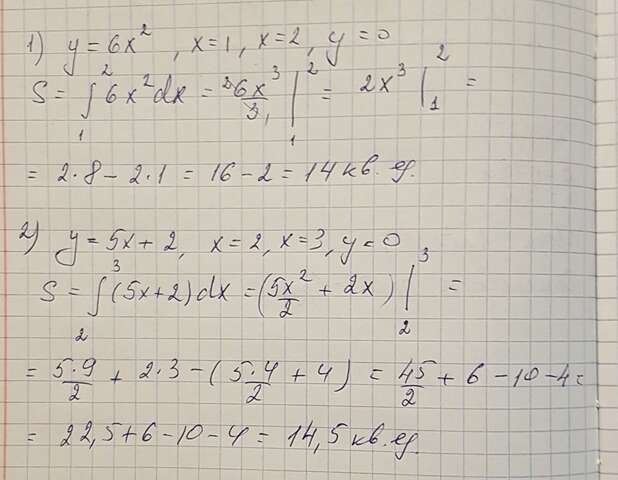 1) y = 6x², x = 1, x = 2, y = 0
S = ∫₁² 6x² dx = ²6x³/3₁ |₁² = 2x³ |₁² =
= 2·8 – 2·1 = 16 – 2 = 14 кв. ед.
2) y = 5x + 2, x = 2, x = 3, y = 0
S = ∫₂³ (5x + 2) dx = (5x²/2 + 2x) |₂³ =
= 5·9/2 + 2·3 – (5·4/2 + 4) = 45/2 + 6 – 10 – 4 =
= 22,5 + 6 – 10 – 4 = 14,5 кв. ед.